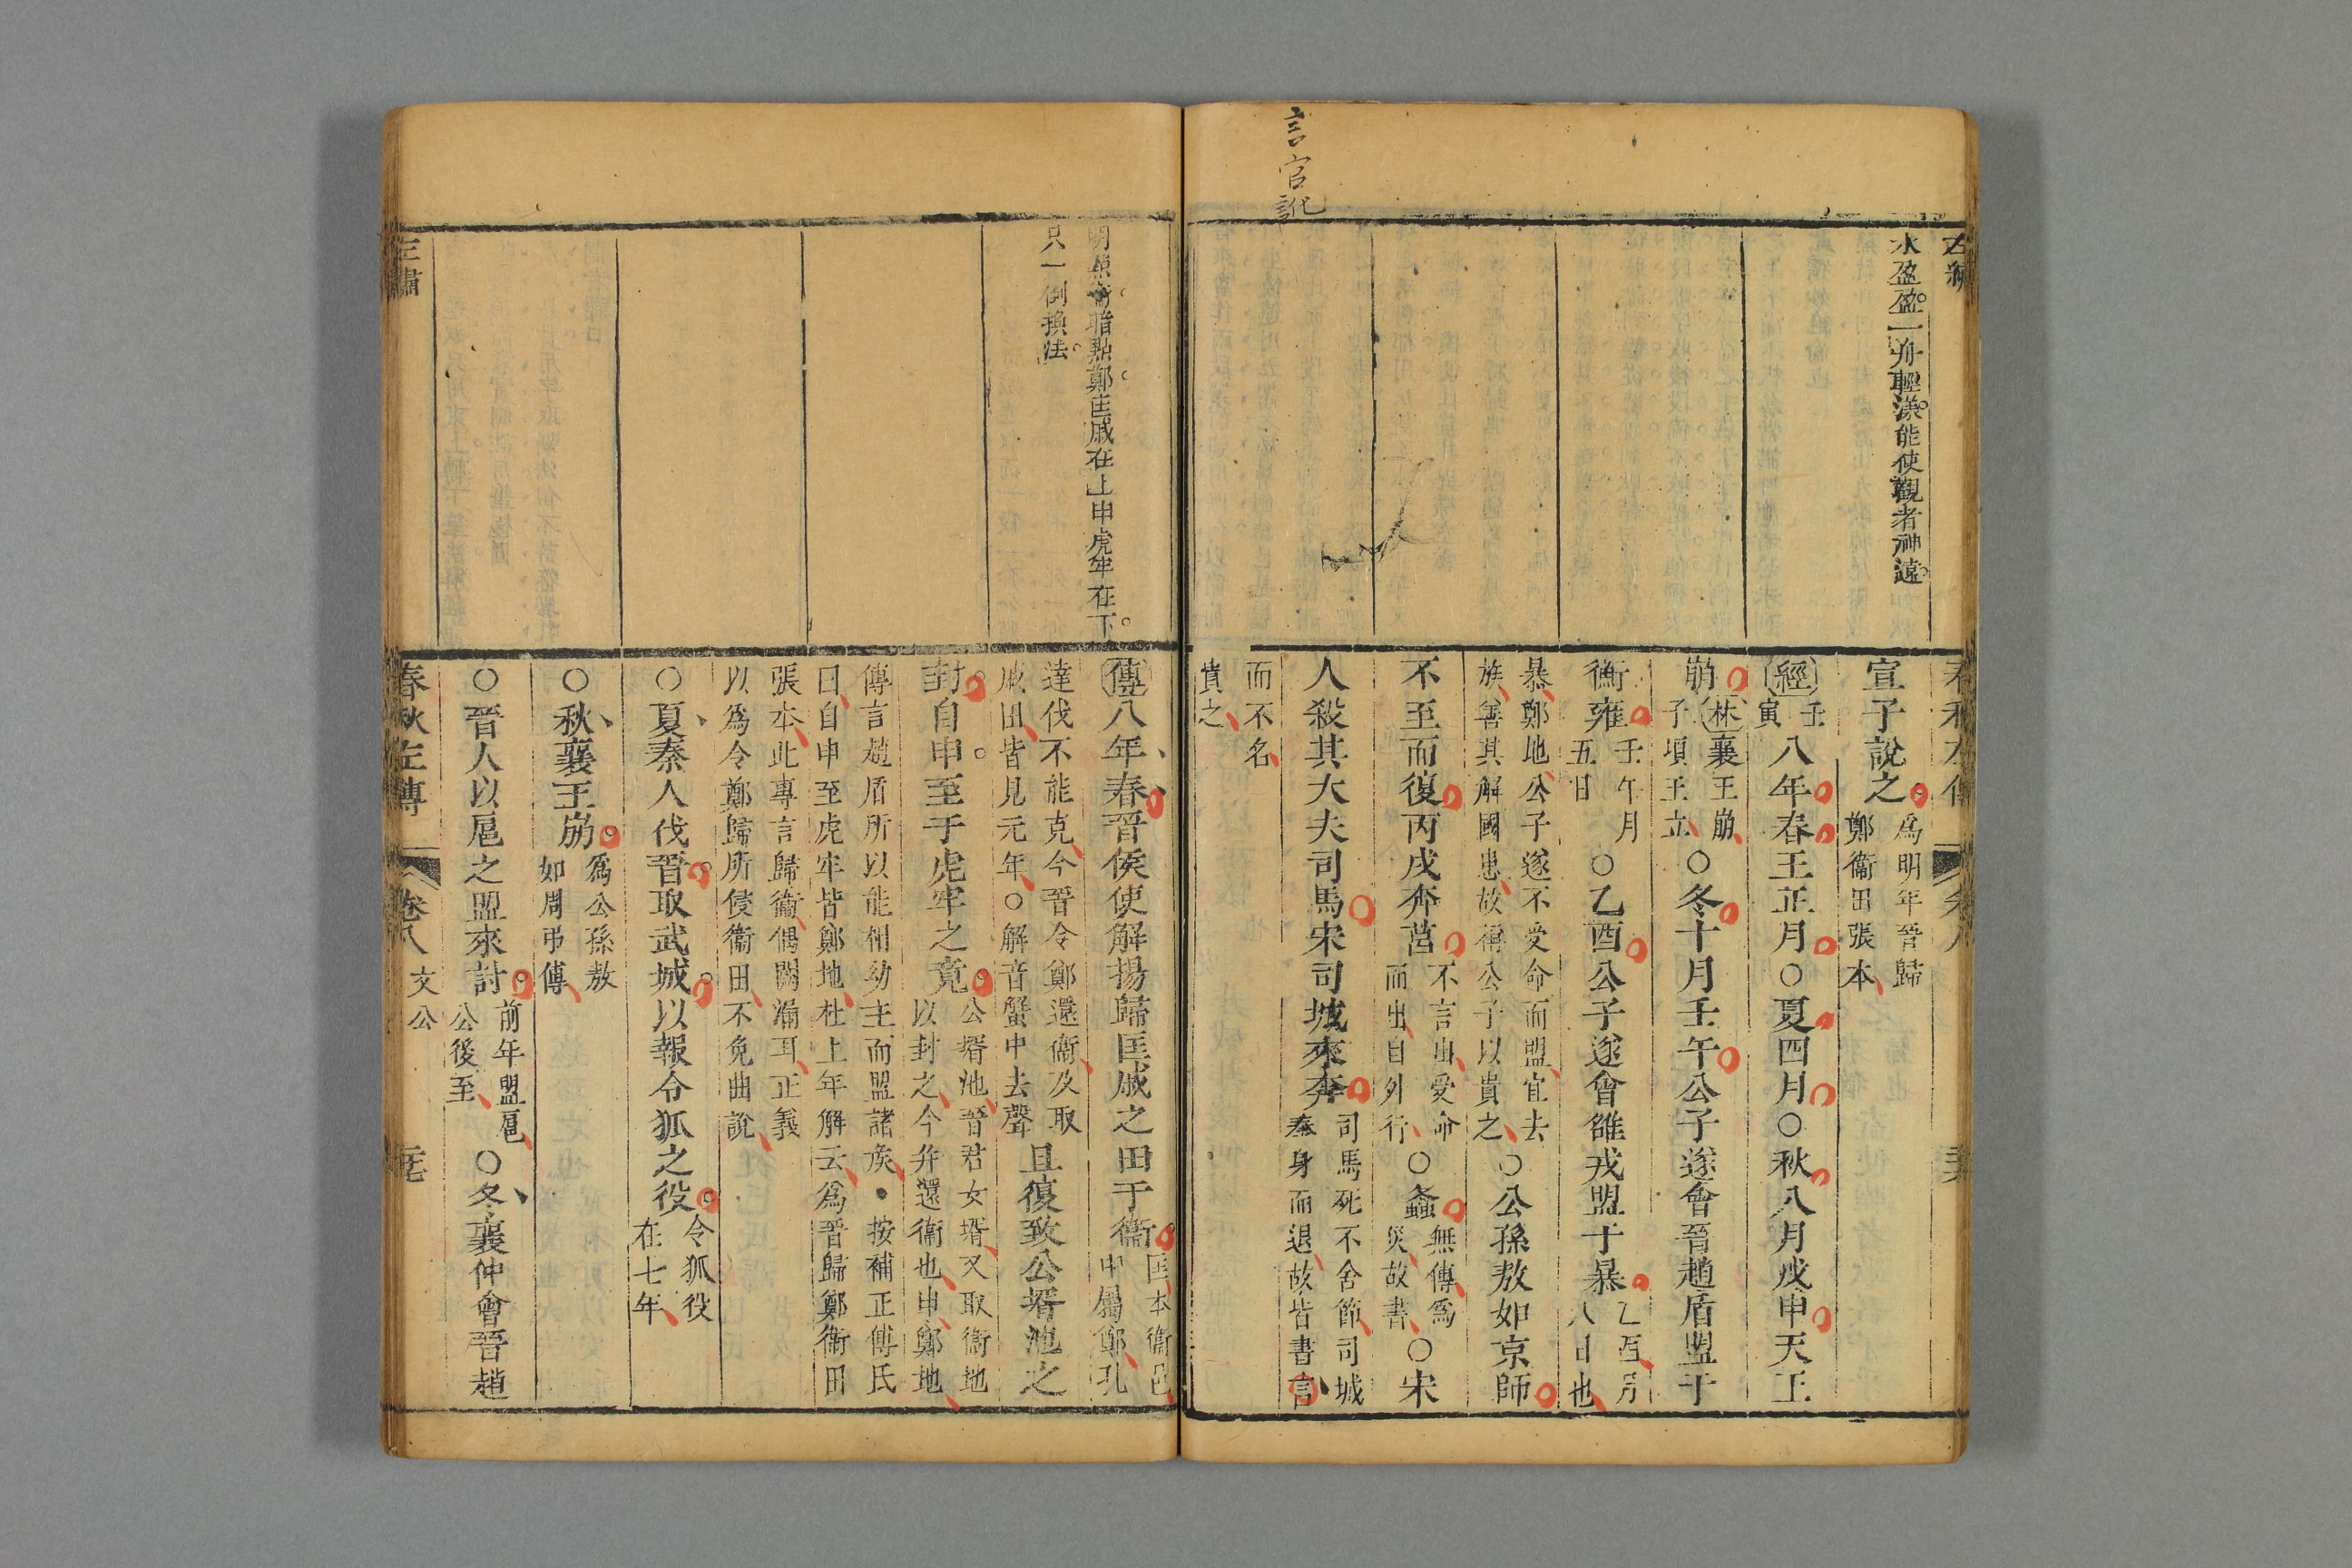 言官
水盈盈一舟輕漾能使觀者神遠
宣子說之爲明年晉歸
鄭衞田張本
經壬
寅八年春王正月○夏四月○秋八月戊申天王
崩林襄王崩
子頃王立○冬十月壬午公子遂會晉趙盾盟于
衡雍壬午月
五日○乙酉公子遂會雒戎盟于暴乙酉月
八日也
暴鄭地公子遂不受命而盟宜去
族善其解國患故稱公子以貴之○公孫敖如京師
不至而復丙戌奔莒不言出受命
而出自外行○螽無傳爲
災故書○宋
人殺其大夫司馬宋司城來奔司馬死不舍節司城
奉身而退故皆書言
而不名
貴之
明點衞暗點鄭匡戚在上申虎牢在下
只一例換法
傳八年春晉侯使解揚歸匡戚之田于衞匡本衞邑
中屬鄭孔
達伐不能克今晉令鄭還衞及取
戚田皆見元年○解音蟹中去聲且復致公壻池之
封自申至于虎牢之竟公壻池晉君女壻又取衞地
以封之今并還衞也申鄭地
傳言趙盾所以能相幼主而盟諸矦・按補正傅氏
曰自申至虎牢皆鄭地杜上年解云爲晉歸鄭衞田
張本此專言歸衞偶闕漏耳正義
以爲令鄭歸所侵衞田不免曲說
○夏秦人伐晉取武城以報令狐之役令狐役
在七年
○秋襄王崩爲公孫敖
如周弔傳
○晉人以扈之盟來討前年盟扈
公後至○冬襄仲會晉趙
春秋左傳
卷八
文公